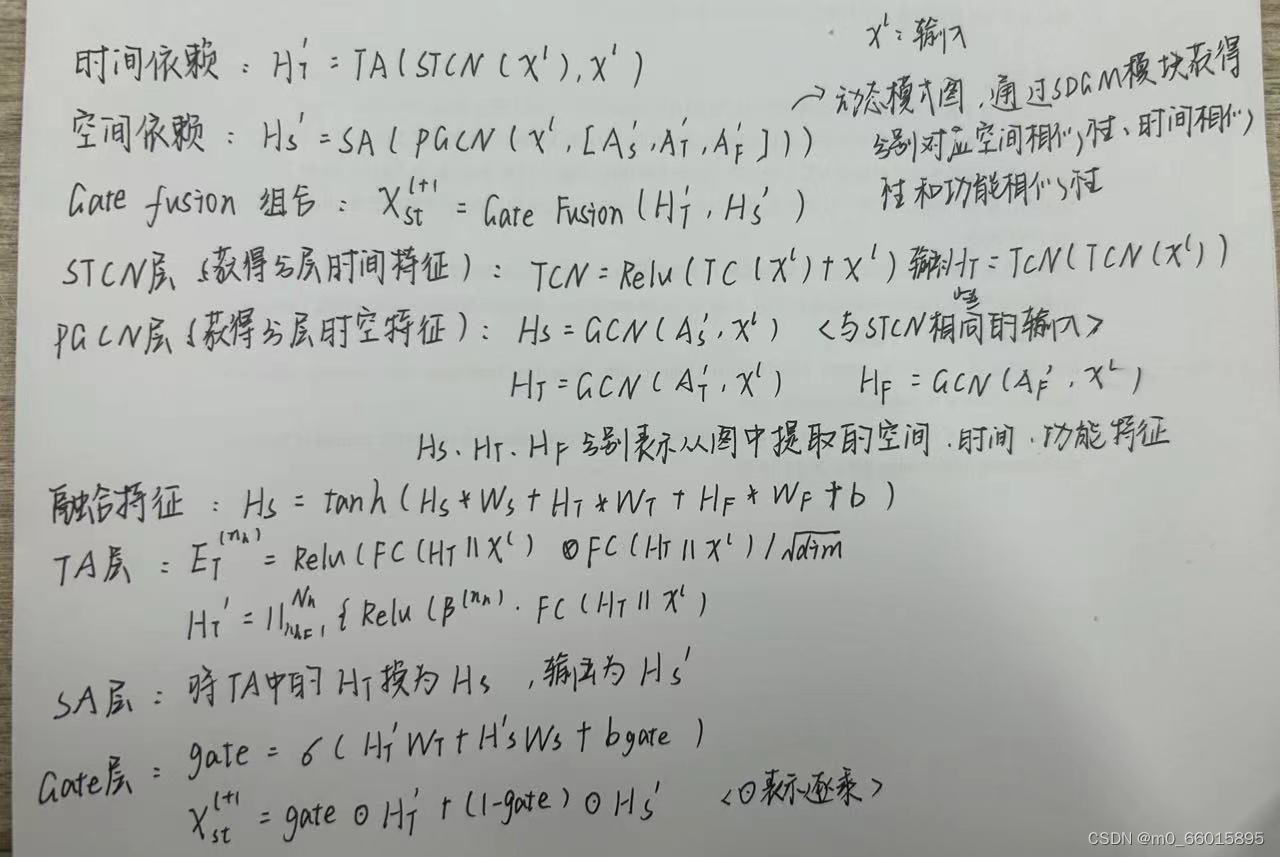 X^l：输入
时间依赖：H_T' = TA(STCN(X^l), X^l)
→动态模式图，通过SDGM模块获得
空间依赖：H_S' = SA(PGCN(X^l, [A_S', A_T', A_F']))
分别对应空间相似性、时间相似
性和功能相似性
Gate fusion 组合：X_st^{l+1} = Gate Fusion(H_T', H_S')
STCN层（获得分层时间特征）：TCN = Relu(TC(X^l) + X^l) 输出H_T = TCN(TCN(X^l))
PGCN层（获得分层时空特征）：H_S = GCN(A_S', X^l) <与STCN相同的输入>
H_T = GCN(A_T', X^l) H_F = GCN(A_F', X^L)
H_S、H_T、H_F 分别表示从图中提取的空间、时间、功能特征
融合特征：H_S = tanh(H_S * W_S + H_T * W_T + H_F * W_F + b)
TA层：E_T^{(n_h)} = Relu(FC(H_T || X^l) ⊙ FC(H_T || X^l) / √dim
H_T' = ||_{n_h=1}^{N_h} { Relu(β^{(n_h)} · FC(H_T || X^l)
SA层：将TA中的 H_T 换为 H_S ，输出为 H_S'
Gate层：gate = σ(H_T' W_T + H_S' W_S + b gate)
X_st^{l+1} = gate ⊙ H_T' + (1-gate) ⊙ H_S' <⊙表示逐乘>
CSDN @m0_66015895